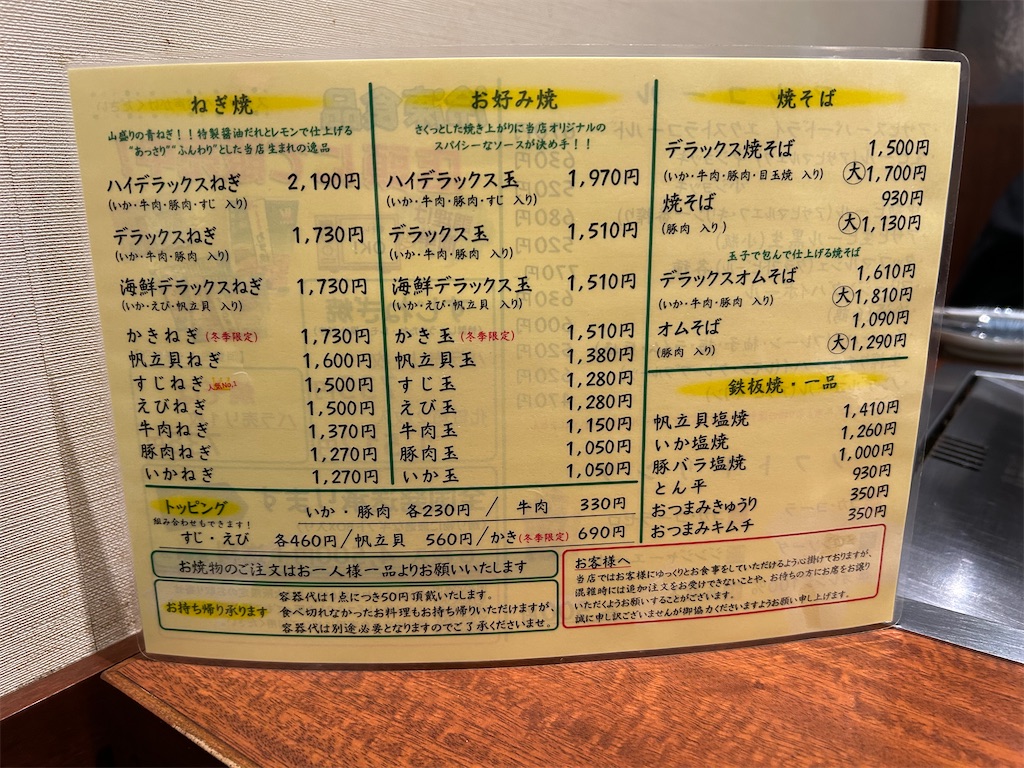 ねぎ焼
山盛りの青ねぎ！！特製醤油だれとレモンで仕上げる
"あっさり""ふんわり"とした当店生まれの逸品
ハイデラックスねぎ 2,190円
(いか・牛肉・豚肉・すじ 入り)
デラックスねぎ 1,730円
(いか・牛肉・豚肉 入り)
海鮮デラックスねぎ 1,730円
(いか・えび・帆立貝 入り)
かきねぎ (冬季限定) 1,730円
帆立貝ねぎ 1,600円
すじねぎ 人気No.1 1,500円
えびねぎ 1,500円
牛肉ねぎ 1,370円
豚肉ねぎ 1,270円
いかねぎ 1,270円
お好み焼
さくっとした焼き上がりに当店オリジナルの
スパイシーなソースが決め手！！
ハイデラックス玉 1,970円
(いか・牛肉・豚肉・すじ 入り)
デラックス玉 1,510円
(いか・牛肉・豚肉 入り)
海鮮デラックス玉 1,510円
(いか・えび・帆立貝 入り)
かき玉 (冬季限定) 1,510円
帆立貝玉 1,380円
すじ玉 1,280円
えび玉 1,280円
牛肉玉 1,150円
豚肉玉 1,050円
いか玉 1,050円
焼そば
デラックス焼そば 1,500円
(いか・牛肉・豚肉・目玉焼 入り) 大1,700円
焼そば 930円
(豚肉 入り) 大1,130円
玉子で包んで仕上げる焼そば
デラックスオムそば 1,610円
(いか・牛肉・豚肉 入り) 大1,810円
オムそば 1,090円
(豚肉 入り) 大1,290円
鉄板焼・一品
帆立貝塩焼 1,410円
いか塩焼 1,260円
豚バラ塩焼 1,000円
とん平 930円
おつまみきゅうり 350円
おつまみキムチ 350円
トッピング
組み合わせもできます！
いか・豚肉 各230円 / 牛肉 330円
すじ・えび 各460円/帆立貝 560円/かき(冬季限定) 690円
お焼物のご注文はお一人様一品よりお願いいたします
お持ち帰り承ります
容器代は1点につき50円頂戴いたします。
食べ切れなかったお料理もお持ち帰りいただけますが、
容器代は別途必要となりますのでご了承くださいませ。
お客様へ
当店ではお客様にゆっくりとお食事をしていただけるよう心掛けておりますが、
混雑時には追加注文をお受けできないことや、お待ちの方にお席をお譲り
いただくようお願いすることがございます。
誠に申し訳ございませんが御協力くださいますようお願い申し上げます。